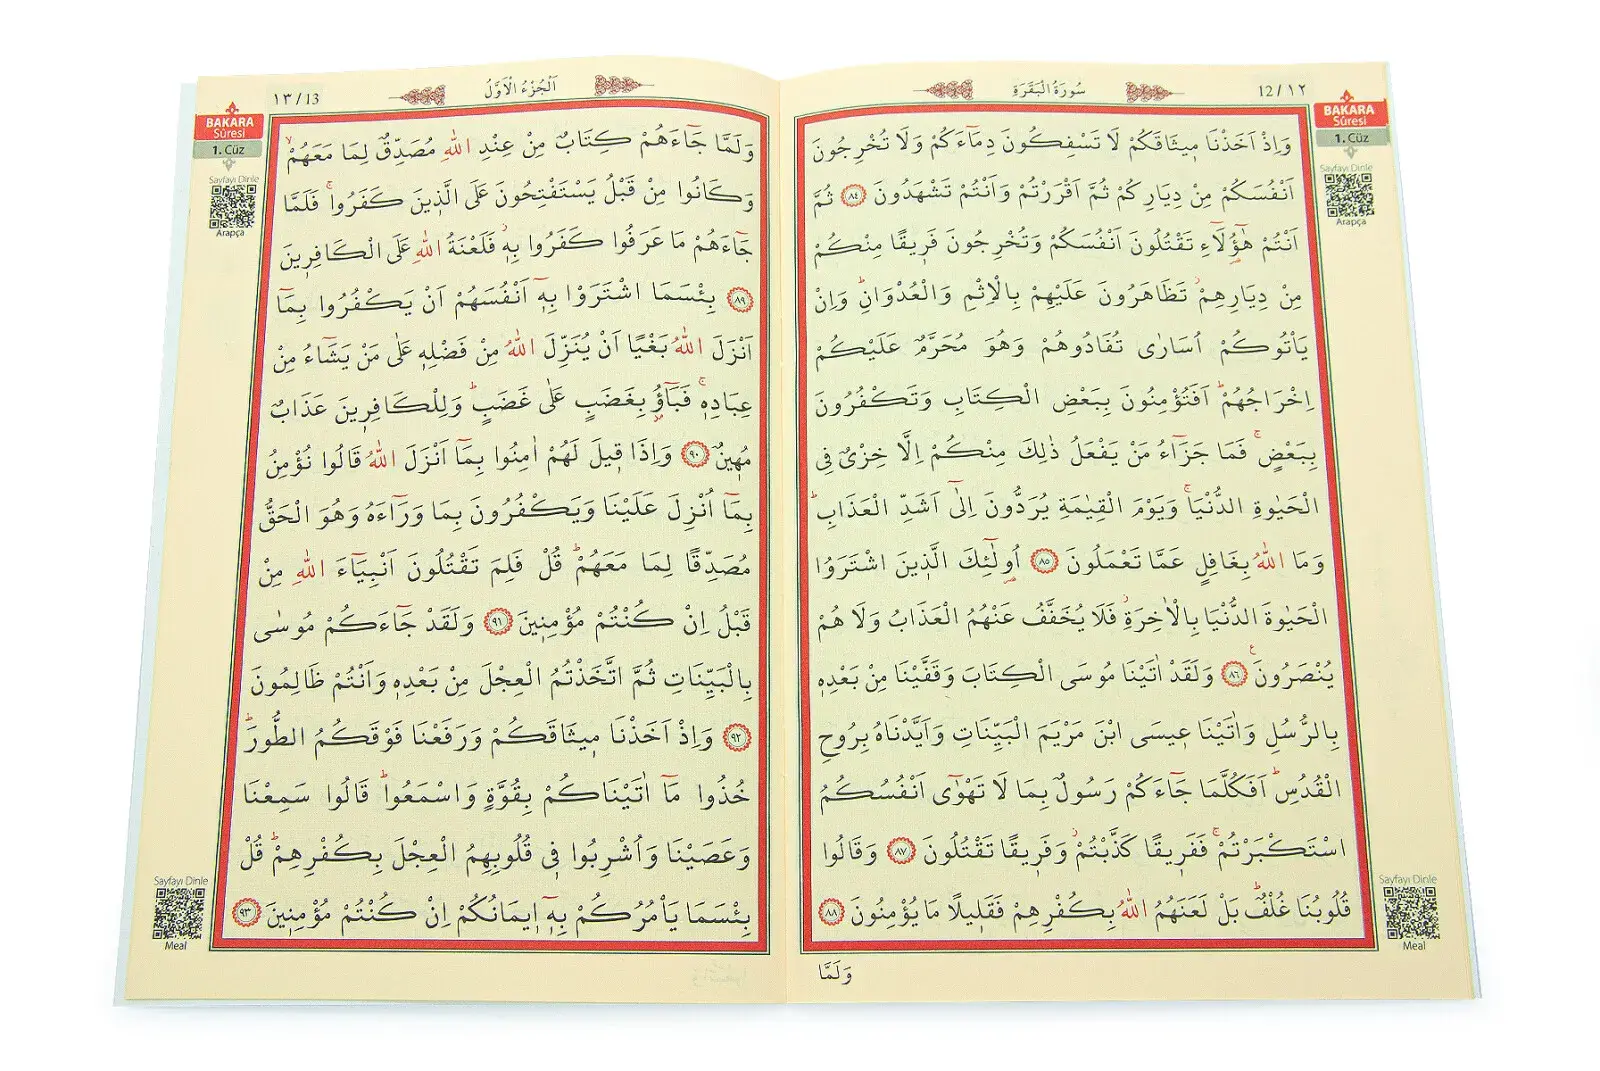 12/١٢
سُورَةُ الْبَقَرَةِ
BAKARA
Sûresi
1. Cüz
Sayfayı Dinle
Arapça
وَاِذْ اَخَذْنَا مٖيثَاقَكُمْ لَا تَسْفِكُونَ دِمَٓاءَكُمْ وَلَا تُخْرِجُونَ
اَنْفُسَكُمْ مِنْ دِيَارِكُمْ ثُمَّ اَقْرَرْتُمْ وَاَنْتُمْ تَشْهَدُونَ ﴿٨٤﴾ ثُمَّ
اَنْتُمْ هٰٓؤُ۬لَٓاءِ تَقْتُلُونَ اَنْفُسَكُمْ وَتُخْرِجُونَ فَرٖيقًا مِنْكُمْ
مِنْ دِيَارِهِمْۘ تَظَاهَرُونَ عَلَيْهِمْ بِالْاِثْمِ وَالْعُدْوَانِؕ وَاِنْ
يَأْتُوكُمْ اُسَارٰى تُفَادُوهُمْ وَهُوَ مُحَرَّمٌ عَلَيْكُمْ
اِخْرَاجُهُمْؕ اَفَتُؤْمِنُونَ بِبَعْضِ الْكِتَابِ وَتَكْفُرُونَ
بِبَعْضٍۚ فَمَا جَزَٓاءُ مَنْ يَفْعَلُ ذٰلِكَ مِنْكُمْ اِلَّا خِزْىٌ فِى
الْحَيٰوةِ الدُّنْيَاۚ وَيَوْمَ الْقِيٰمَةِ يُرَدُّونَ اِلٰٓى اَشَدِّ الْعَذَابِؕ
وَمَا اللّٰهُ بِغَافِلٍ عَمَّا تَعْمَلُونَ ﴿٨٥﴾ اُو۬لٰٓئِكَ الَّذٖينَ اشْتَرَوُا
الْحَيٰوةَ الدُّنْيَا بِالْاٰخِرَةِؗ فَلَا يُخَفَّفُ عَنْهُمُ الْعَذَابُ وَلَا هُمْ
يُنْصَرُونَ ﴿٨٦﴾ وَلَقَدْ اٰتَيْنَا مُوسَى الْكِتَابَ وَقَفَّيْنَا مِنْ بَعْدِهٖ
بِالرُّسُلِ وَاٰتَيْنَا عٖيسَى ابْنَ مَرْيَمَ الْبَيِّنَاتِ وَاَيَّدْنَاهُ بِرُوحِ
الْقُدُسِؕ اَفَكُلَّمَا جَٓاءَكُمْ رَسُولٌ بِمَا لَا تَهْوٰٓى اَنْفُسُكُمُ
اسْتَكْبَرْتُمْۚ فَفَرٖيقًا كَذَّبْتُمْؗ وَفَرٖيقًا تَقْتُلُونَ ﴿٨٧﴾ وَقَالُوا
قُلُوبُنَا غُلْفٌؕ بَلْ لَعَنَهُمُ اللّٰهُ بِكُفْرِهِمْ فَقَلٖيلًا مَا يُؤْمِنُونَ ﴿٨٨﴾
وَلَمَّا
Sayfayı Dinle
Meal
١٣/13
اَلْجُزْءُ الْاَوَّلُ
BAKARA
Sûresi
1. Cüz
Sayfayı Dinle
Arapça
وَلَمَّا جَٓاءَهُمْ كِتَابٌ مِنْ عِنْدِ اللّٰهِ مُصَدِّقٌ لِمَا مَعَهُمْۙ
وَكَانُوا مِنْ قَبْلُ يَسْتَفْتِحُونَ عَلَى الَّذٖينَ كَفَرُواۚ فَلَمَّا
جَٓاءَهُمْ مَا عَرَفُوا كَفَرُوا بِهٖؗ فَلَعْنَةُ اللّٰهِ عَلَى الْكَافِرٖينَ
﴿٨٩﴾ بِئْسَمَا اشْتَرَوْا بِهٖٓ اَنْفُسَهُمْ اَنْ يَكْفُرُوا بِمَٓا
اَنْزَلَ اللّٰهُ بَغْيًا اَنْ يُنَزِّلَ اللّٰهُ مِنْ فَضْلِهٖ عَلٰى مَنْ يَشَٓاءُ مِنْ
عِبَادِهٖۚ فَبَٓاؤُ۫ بِغَضَبٍ عَلٰى غَضَبٍؕ وَلِلْكَافِرٖينَ عَذَابٌ
مُهٖينٌ ﴿٩٠﴾ وَاِذَا قٖيلَ لَهُمْ اٰمِنُوا بِمَٓا اَنْزَلَ اللّٰهُ قَالُوا نُؤْمِنُ
بِمَٓا اُنْزِلَ عَلَيْنَا وَيَكْفُرُونَ بِمَا وَرَٓاءَهُ وَهُوَ الْحَقُّ
مُصَدِّقًا لِمَا مَعَهُمْؕ قُلْ فَلِمَ تَقْتُلُونَ اَنْبِيَٓاءَ اللّٰهِ مِنْ
قَبْلُ اِنْ كُنْتُمْ مُؤْمِنٖينَ ﴿٩١﴾ وَلَقَدْ جَٓاءَكُمْ مُوسٰى
بِالْبَيِّنَاتِ ثُمَّ اتَّخَذْتُمُ الْعِجْلَ مِنْ بَعْدِهٖ وَاَنْتُمْ ظَالِمُونَ
﴿٩٢﴾ وَاِذْ اَخَذْنَا مٖيثَاقَكُمْ وَرَفَعْنَا فَوْقَكُمُ الطُّورَؕ
خُذُوا مَٓا اٰتَيْنَاكُمْ بِقُوَّةٍ وَاسْمَعُواؕ قَالُوا سَمِعْنَا
وَعَصَيْنَا وَاُشْرِبُوا فٖى قُلُوبِهِمُ الْعِجْلَ بِكُفْرِهِمْؕ قُلْ
بِئْسَمَا يَأْمُرُكُمْ بِهٖٓ اٖيمَانُكُمْ اِنْ كُنْتُمْ مُؤْمِنٖينَ ﴿٩٣﴾
Sayfayı Dinle
Meal